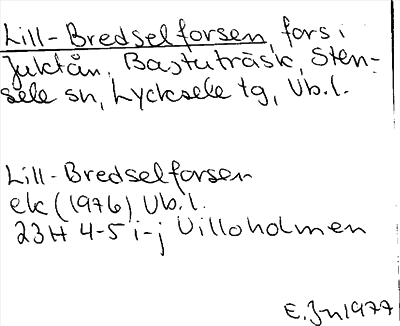 Lill-Bredselforsen, fors i
Juktån, Bastuträsk, Sten-
sele sn, Lycksele tg, Vb.l.
Lill-Bredselforsen
ek (1976) Vb.l.
23H 4-5 i-j Villoholmen
E.Jn 1977